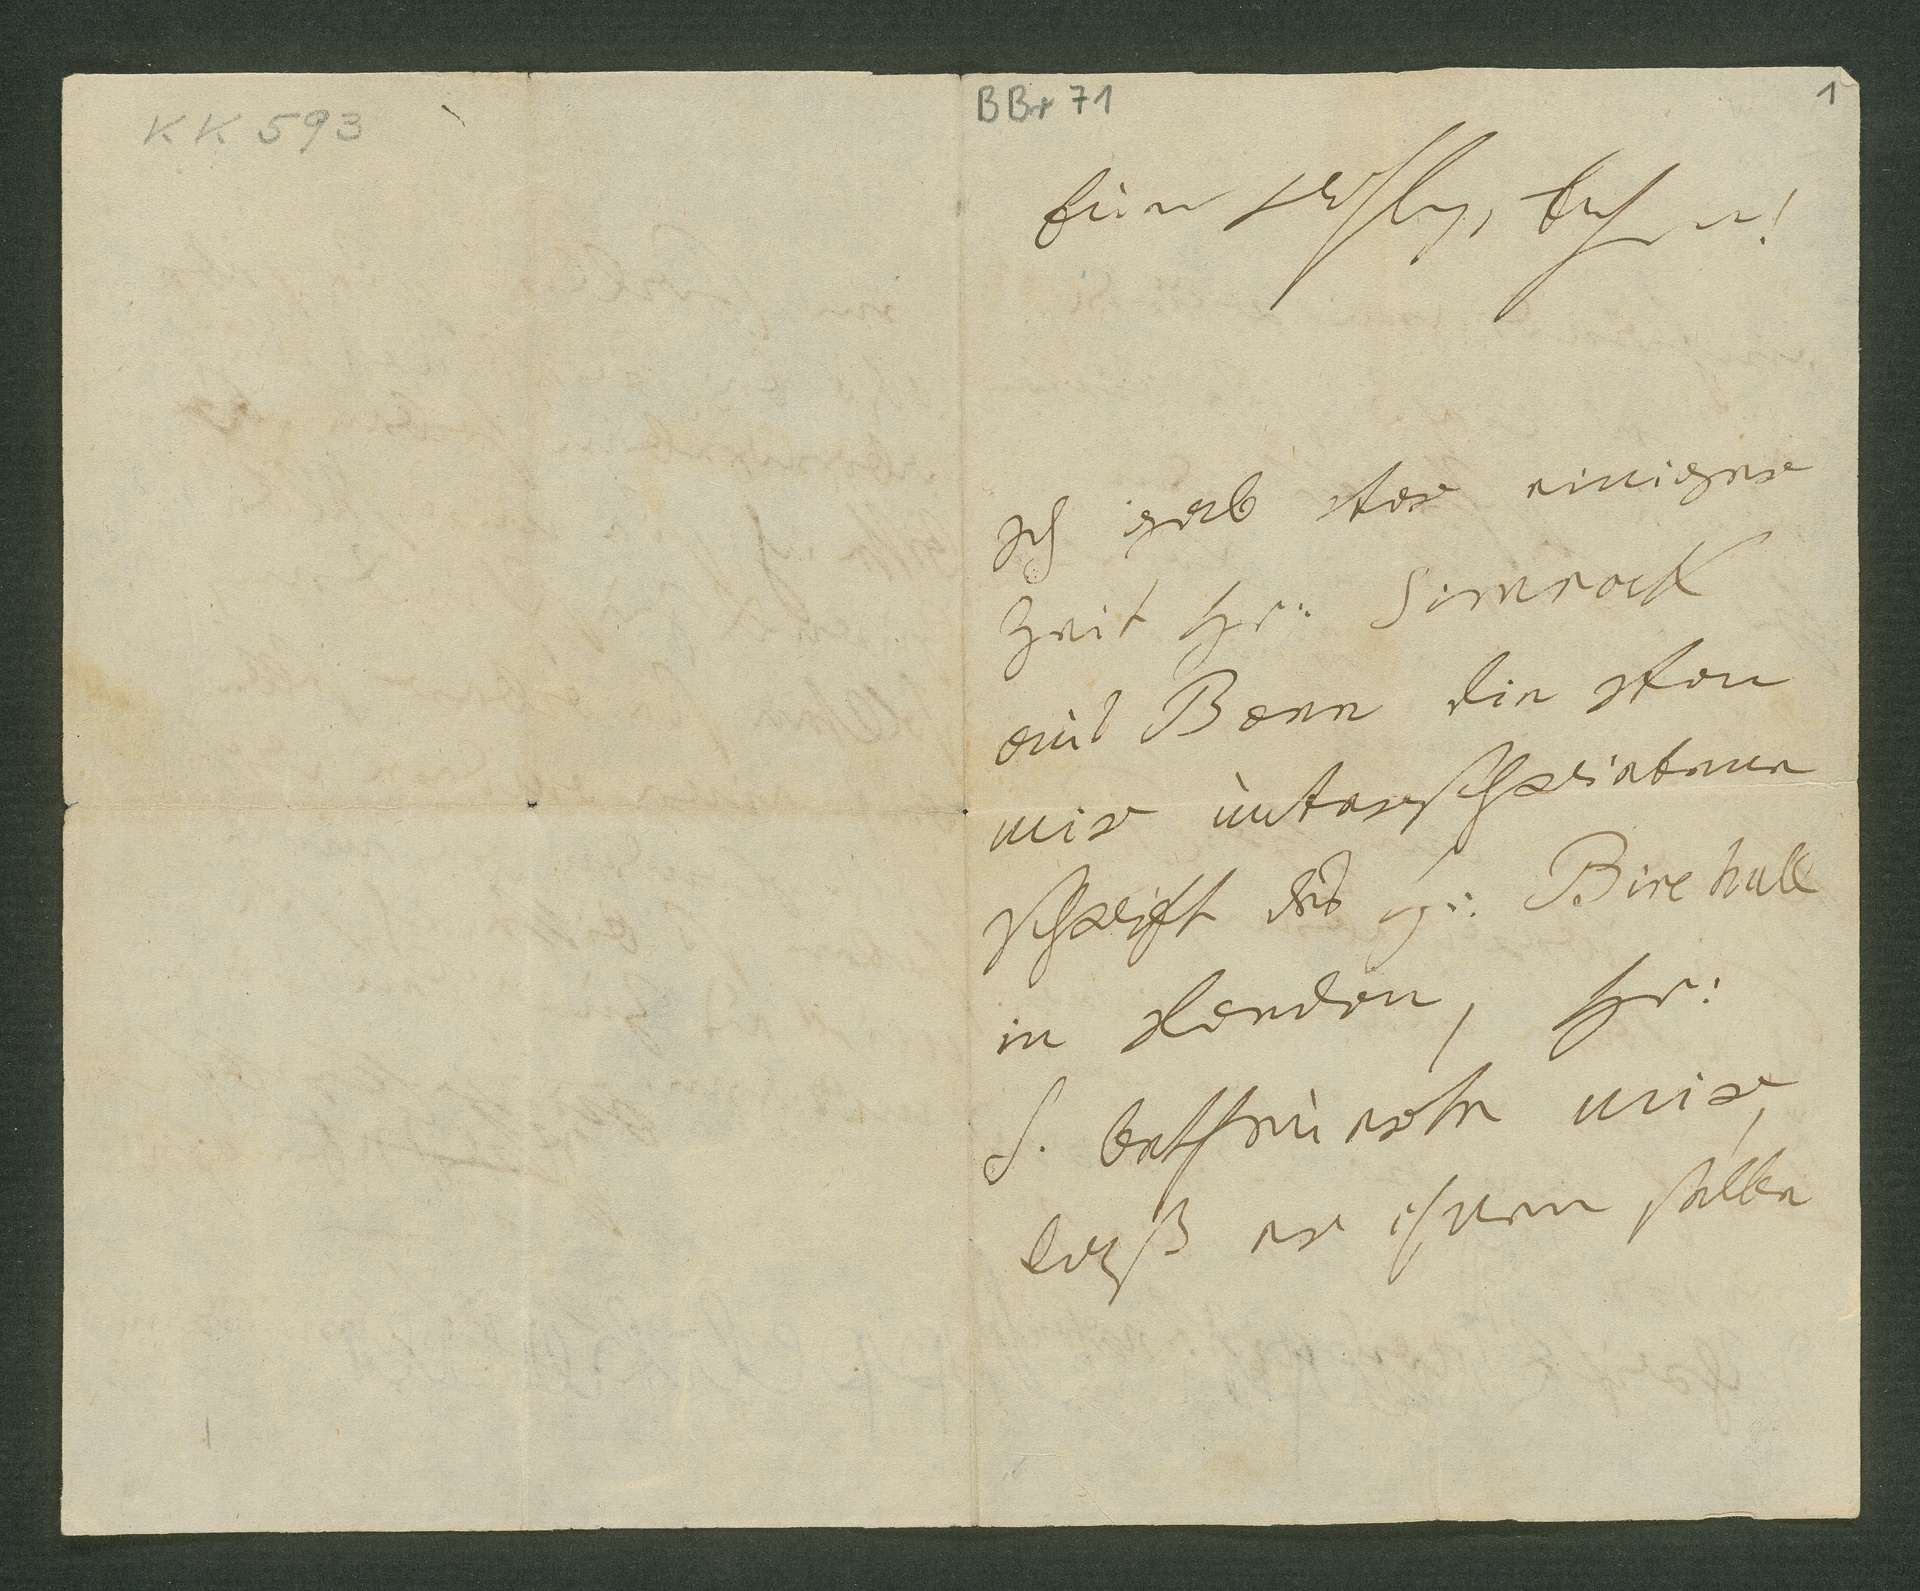 KK 593
BBr 71
1
Euer wohlgb,
Ich gab vor einiger
Zeit Hr: Simrock
aus Bonn die von
mir unterschriebene
schrift des Hr: Birchall
in London, Hr:
S. betheuerte mir,
daß er ihnen selbe